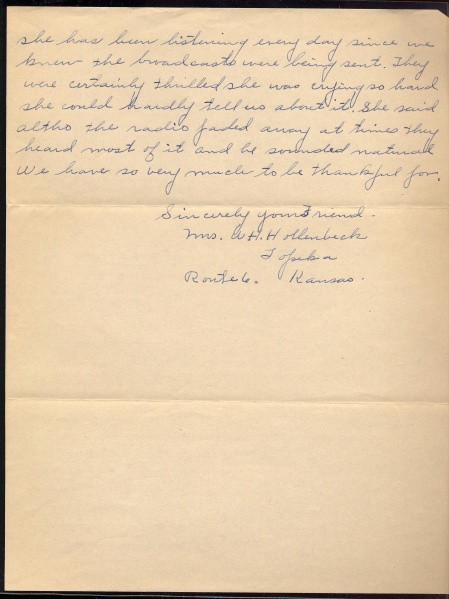 she has been listening every day since we
knew the broadcasts were being sent. They
were certainly thrilled she was crying so hard
she could hardly tell us about it. She said
altho the radio faded away at times they
heard most of it and he sounded natural
We have so very much to be thankful for.
Sincerely your Friend.
Mrs. W.H. Hollenbeck
Topeka
Route 6. Kansas.